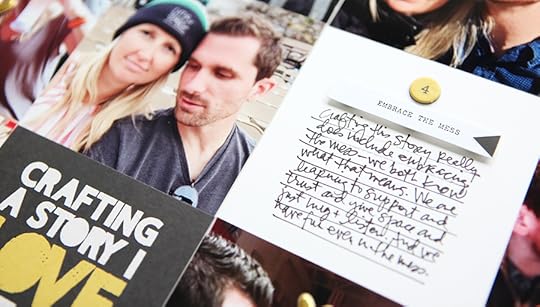 CRAFTING
A STORY I
LOVE
4
EMBRACE THE MESS
Crafting this story really
does include embracing
the mess - we both know
what that means. We are
learning to support and
trust and give space and
just hug & listen. And we
have fun even in the mess.